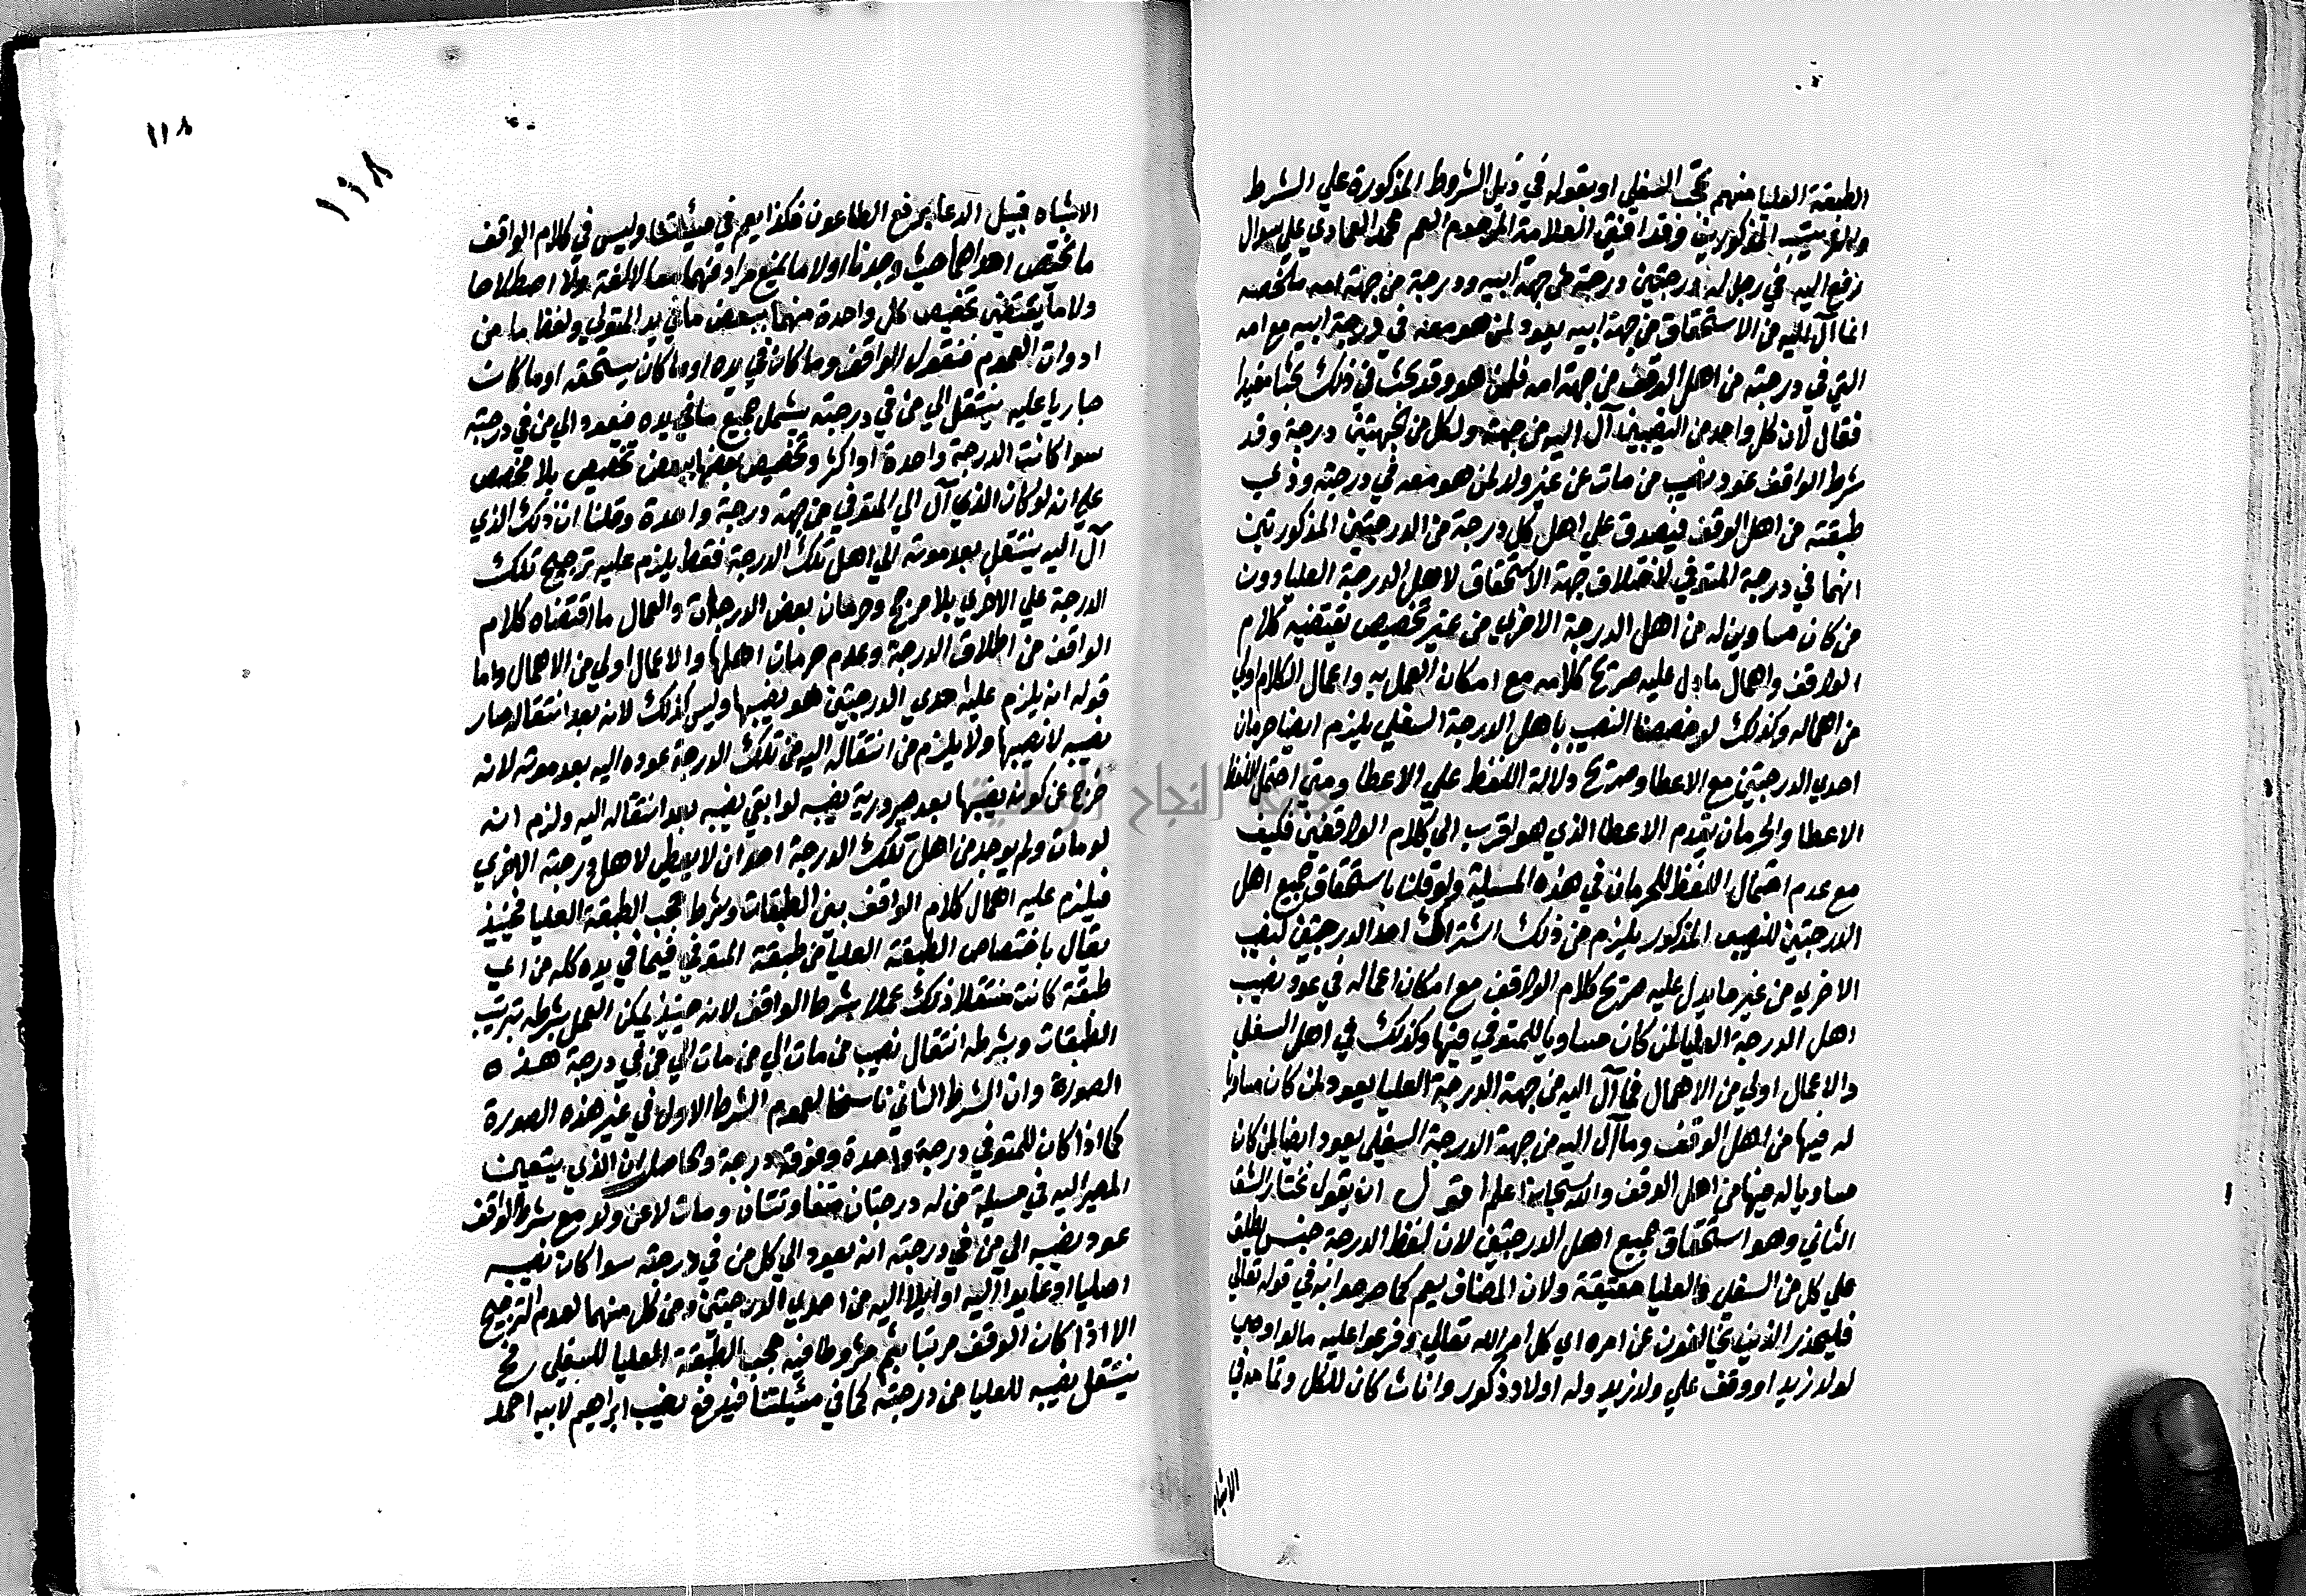 الطبقة العليا منهم تحجب السفلي او بقوله في ذيل الشروط المذكورة علي الشرط
والترتيب المذكورين وقد افتي العلامة المرحوم العم محمد العمادي علي سوال
رفع اليه في رجل له درجتين درجة من جهة ابيه ودرجة من جهة امه ملخصه
انما آل اليه من الاستحقاق من جهة ابيه يعود لمن هو معه في درجة ابيه مع امه
التي في درجته من اهل الوقف من جهة امه فلمن هو وقد بحث في ذلك بحثا مفيدا
فقال لان كل واحد من النصيبين آل اليه من جهة ولكل من الجهتين درجة وقد
شرط الواقف عود نصيب من مات عن غير ولد لمن هو معه في درجته وذوي
طبقته من اهل الوقف فيصدق علي اهل كل درجة من الدرجتين المذكورتين
انهما في درجة المتوفي لاختلاف جهة الاستحقاق لاهل الدرجة العليا دون
من كان مساوين له من اهل الدرجة الاخري من غير تخصيص يقتضيه كلام
الواقف واهمال ما دل عليه صريح كلامه مع امكان العمل به واعمال الكلام اولي
من اهماله وكذلك لو خصصنا النصيب باهل الدرجة السفلي يلزم ايضا حرمان
احدي الدرجتين مع الاعطا وصريح دلالة اللفظ علي الاعطا ومتي احتمل اللفظ
الاعطا والحرمان يقدم الاعطا الذي هو اقرب الي كلام الواقفين فكيف
مع عدم احتمال اللفظ للحرمان في هذه المسيلة ولو قلنا باستحقاق جميع اهل
الدرجتين للنصيب المذكور يلزم من ذلك اشتراك احد الدرجتين لنصيب
الاخري من غير ما يدل عليه صريح كلام الواقف مع امكان اعماله في عود نصيب
اهل الدرجة العليا لمن كان مساويا للمتوفي فيها وكذلك في اهل السفلي
والاعمال اولي من الاهمال فما آل اليه من جهة الدرجة العليا يعود لمن كان مساويا
له فيها من اهل الوقف وما آل اليه من جهة الدرجة السفلي يعود ايضا لمن كان
مساويا له فيها من اهل الوقف والله سبحانه اعلم اقول ان يقول نختار الشق
الثاني وهو استحقاق جميع اهل الدرجتين لان لفظ الدرجة جنس يطلق
علي كل من السفلي والعليا حقيقة ولان المضاف يعم كما صرحوا به في قوله تعالي
فليحذر الذين يخالفون عن امره اي كل امر الله تعالي وفرعوا عليه ما لو اوصي
لولد زيد او وقف علي ولد زيد وله اولاد ذكور واناث كان للكل وتمامه في
الاشباه
١١٨
١١٨
الاشباه قبيل الدعا برفع الطاعون فكذا يعم في مسيلتنا وليس في كلام الواقف
ما يختص احداهما حيث وجدنا اولا ما يمنع مراد منهما معا لا لغة ولا اصطلاحا
ولا ما يقتضي تخصيص كل واحدة منهما ببعض ما في يد المتوفي ولفظ ما من
ادوات العموم فنقول الواقف وما كان في يده او ما كان يستحقه او ما كان
جاريا عليه ينتقل الي من في درجته يشمل جميع ما في يده فيعود الي من في درجته
سوا كانت الدرجة واحدة او اكثر وتخصيص بعضها ببعض تخصيص بلا مخصص
علي انه لو كان الذي آل الي المتوفي من جهة درجة واحدة وقلنا ان ذلك الذي
آل اليه ينتقل بعد موته الي اهل تلك الدرجة فقط يلزم عليه ترجيح تلك
الدرجة علي الاخري بلا مرجح وحرمان بعض الدرجات والعمال ما اقتضاه كلام
الواقف من اطلاق الدرجة وعدم حرمان اهلها والاعمال اولي من الاهمال واما
قوله انه يلزم عليه احدي الدرجتين هو نصيبها وليس كذلك لانه بعد انتقاله صار
نصيبه لا نصيبها ولا يلزم من انتقاله اليه من تلك الدرجة عوده اليه بعد موته لانه
خرج عن كونه نصيبها بعد صيرورته نصيبه لو ابقي نصيبه بعد انتقاله اليه ولزم انه
لو مات ولم يوجد من اهل تلك الدرجة احد ان لا يعطي لاهل درجته الاخري
فيلزم عليه اهمال كلام الواقف بين الطبقات وشرط حجب الطبقة العليا فحينيذ
يقال باختصاص الطبقة العليا من طبقة المتوفي فيما في يده كله من اي
طبقة كانت منتقلا ذلك عملا بشرط الواقف لانه حينيذ يمكن العمل بشرطه ترتيب
الطبقات وبشرطه انتقال نصيب من مات الي من مات الي من في درجة هذه
الصورة وان الشرط الثاني ناسخا لعموم الشرط الاول في غير هذه الصورة
كما اذا كان للمتوفي درجة واحدة وفوقه درجة والحاصل ان الذي يتعين
المصير اليه في مسيلة من له درجتان متفاوتتان ومات لا عن ولد مع شرط الواقف
عود نصيبه الي من في درجته انه يعود الي كل من في درجته سوا كان نصيبه
اصليا او عايدا اليه او ايلا اليه من احدي الدرجتين ومن كل منهما لعدم الترجيح
الا اذا كان الوقف مرتبا بثم مشروطا فيه حجب الطبقة العليا للسفلي رجح
ينتقل نصيبه للعليا من درجته كما في مسيلتنا فيرفع نصيب ابراهيم لابيه احمد
جامعة النجاح الوطنية